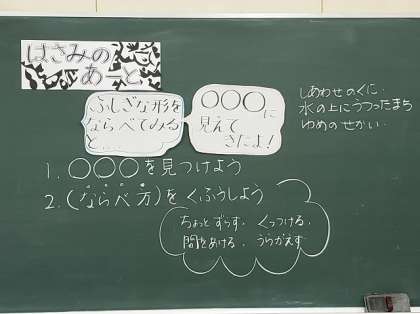 はさみの
あーと
ふしぎな形を
ならべてみる
と…
○○○に
見えて
きたよ!
しあわせのくに、
水の上にうつったまち
ゆめのせかい、
1. ○○○を見つけよう
2. (ならべ方)をくふうしよう
ちょっとずらす、くっつける、
間をあける、うらがえす